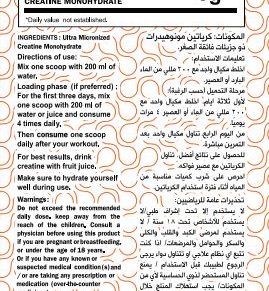 CREATINE MONOHYDRATE
*Daily value not established.
INGREDIENTS: Ultra Micronized
Creatine Monohydrate
Directions of use:
Mix one scoop with 200 ml of
water.
Loading phase (if preferred) :
For the first three days, mix
one scoop with 200 ml of
water or juice and consume
4 times daily.
Then consume one scoop
daily after your workout.
For best results, drink
creatine with fruit juice.
Make sure to hydrate yourself
well during use.
Warnings:
Do not exceed the recommended
daily dose. keep away from the
reach of the children. Consult a
physician before using this product
if you are pregnant or breastfeeding,
or under the age of 18 years.
Or if you have any known or
suspected medical condition(s) and
/ or are taking any prescription or
medication (over-the-counter
المكونات: كرياتين مونوهيدرات
ذو جزيئات فائقة الصغر
تعليمات الاستخدام:
اخلط مكيال واحد مع ٢٠٠ مللي من الماء
البارد أو العصير.
مرحلة التحميل (حسب الرغبة):
لأول ثلاثة أيام، اخلط مكيال واحد مع
٢٠٠ مللي من الماء أو العصير ٤ مرات
يومياً.
من اليوم الرابع تناول مكيال واحد بعد
التمرين مباشرة.
للحصول على نتائج أفضل، تناول
الكرياتين مع عصير فواكه.
احرص على شرب كميات مناسبة من
المياه أثناء فترة استخدام الكرياتين.
تحذيرات عامة للرياضيين:
لا يستخدم إلا تحت إشراف طبي/لا
يستخدم للأشخاص تحت ١٨ سنة / لا
يستخدم لمرضى الكبد والقلب والكلى
والسكر والحوامل والمرضعات/ إذا كنت
تتبع أي نظام علاجي أو تتناول دواء يرجى
الرجوع لطبيبك قبل الاستخدام / يمنع
تناول المستحضر لذوي الحساسية لأي من
مكوناته/ يجب استهلاك المنتج خلال